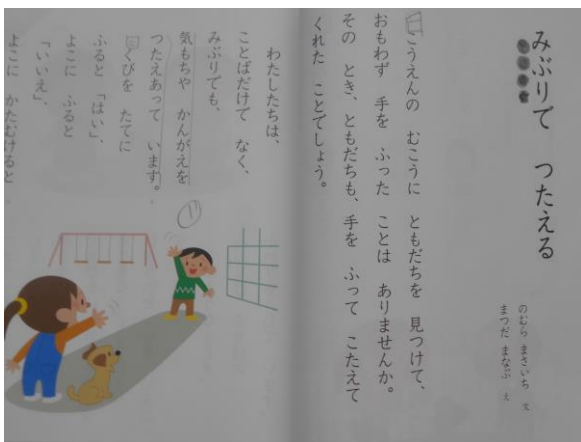 みぶりで つたえる
のむら まさいち 文
まつだ まなぶ え
こうえんの むこうに ともだちを 見つけて、
おもわず 手を ふった ことは ありませんか。
その とき、ともだちも、手を ふって こたえて
くれた ことでしょう。
わたしたちは、
ことばだけで なく、
みぶりでも、
気もちや かんがえを
つたえあって います。
くびを たてに
ふると 「はい」、
よこに ふると
「いいえ」、
よこに かたむけると